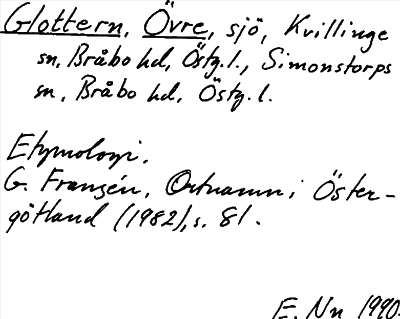 Glottern, Övre, sjö, Kvillinge
sn, Bråbo hd, Östg. l., Simonstorps
sn, Bråbo hd, Östg. l.
Etymologi.
G. Franzén, Ortnamn i Öster-
götland (1982), s. 81.
E. Nn 1990.